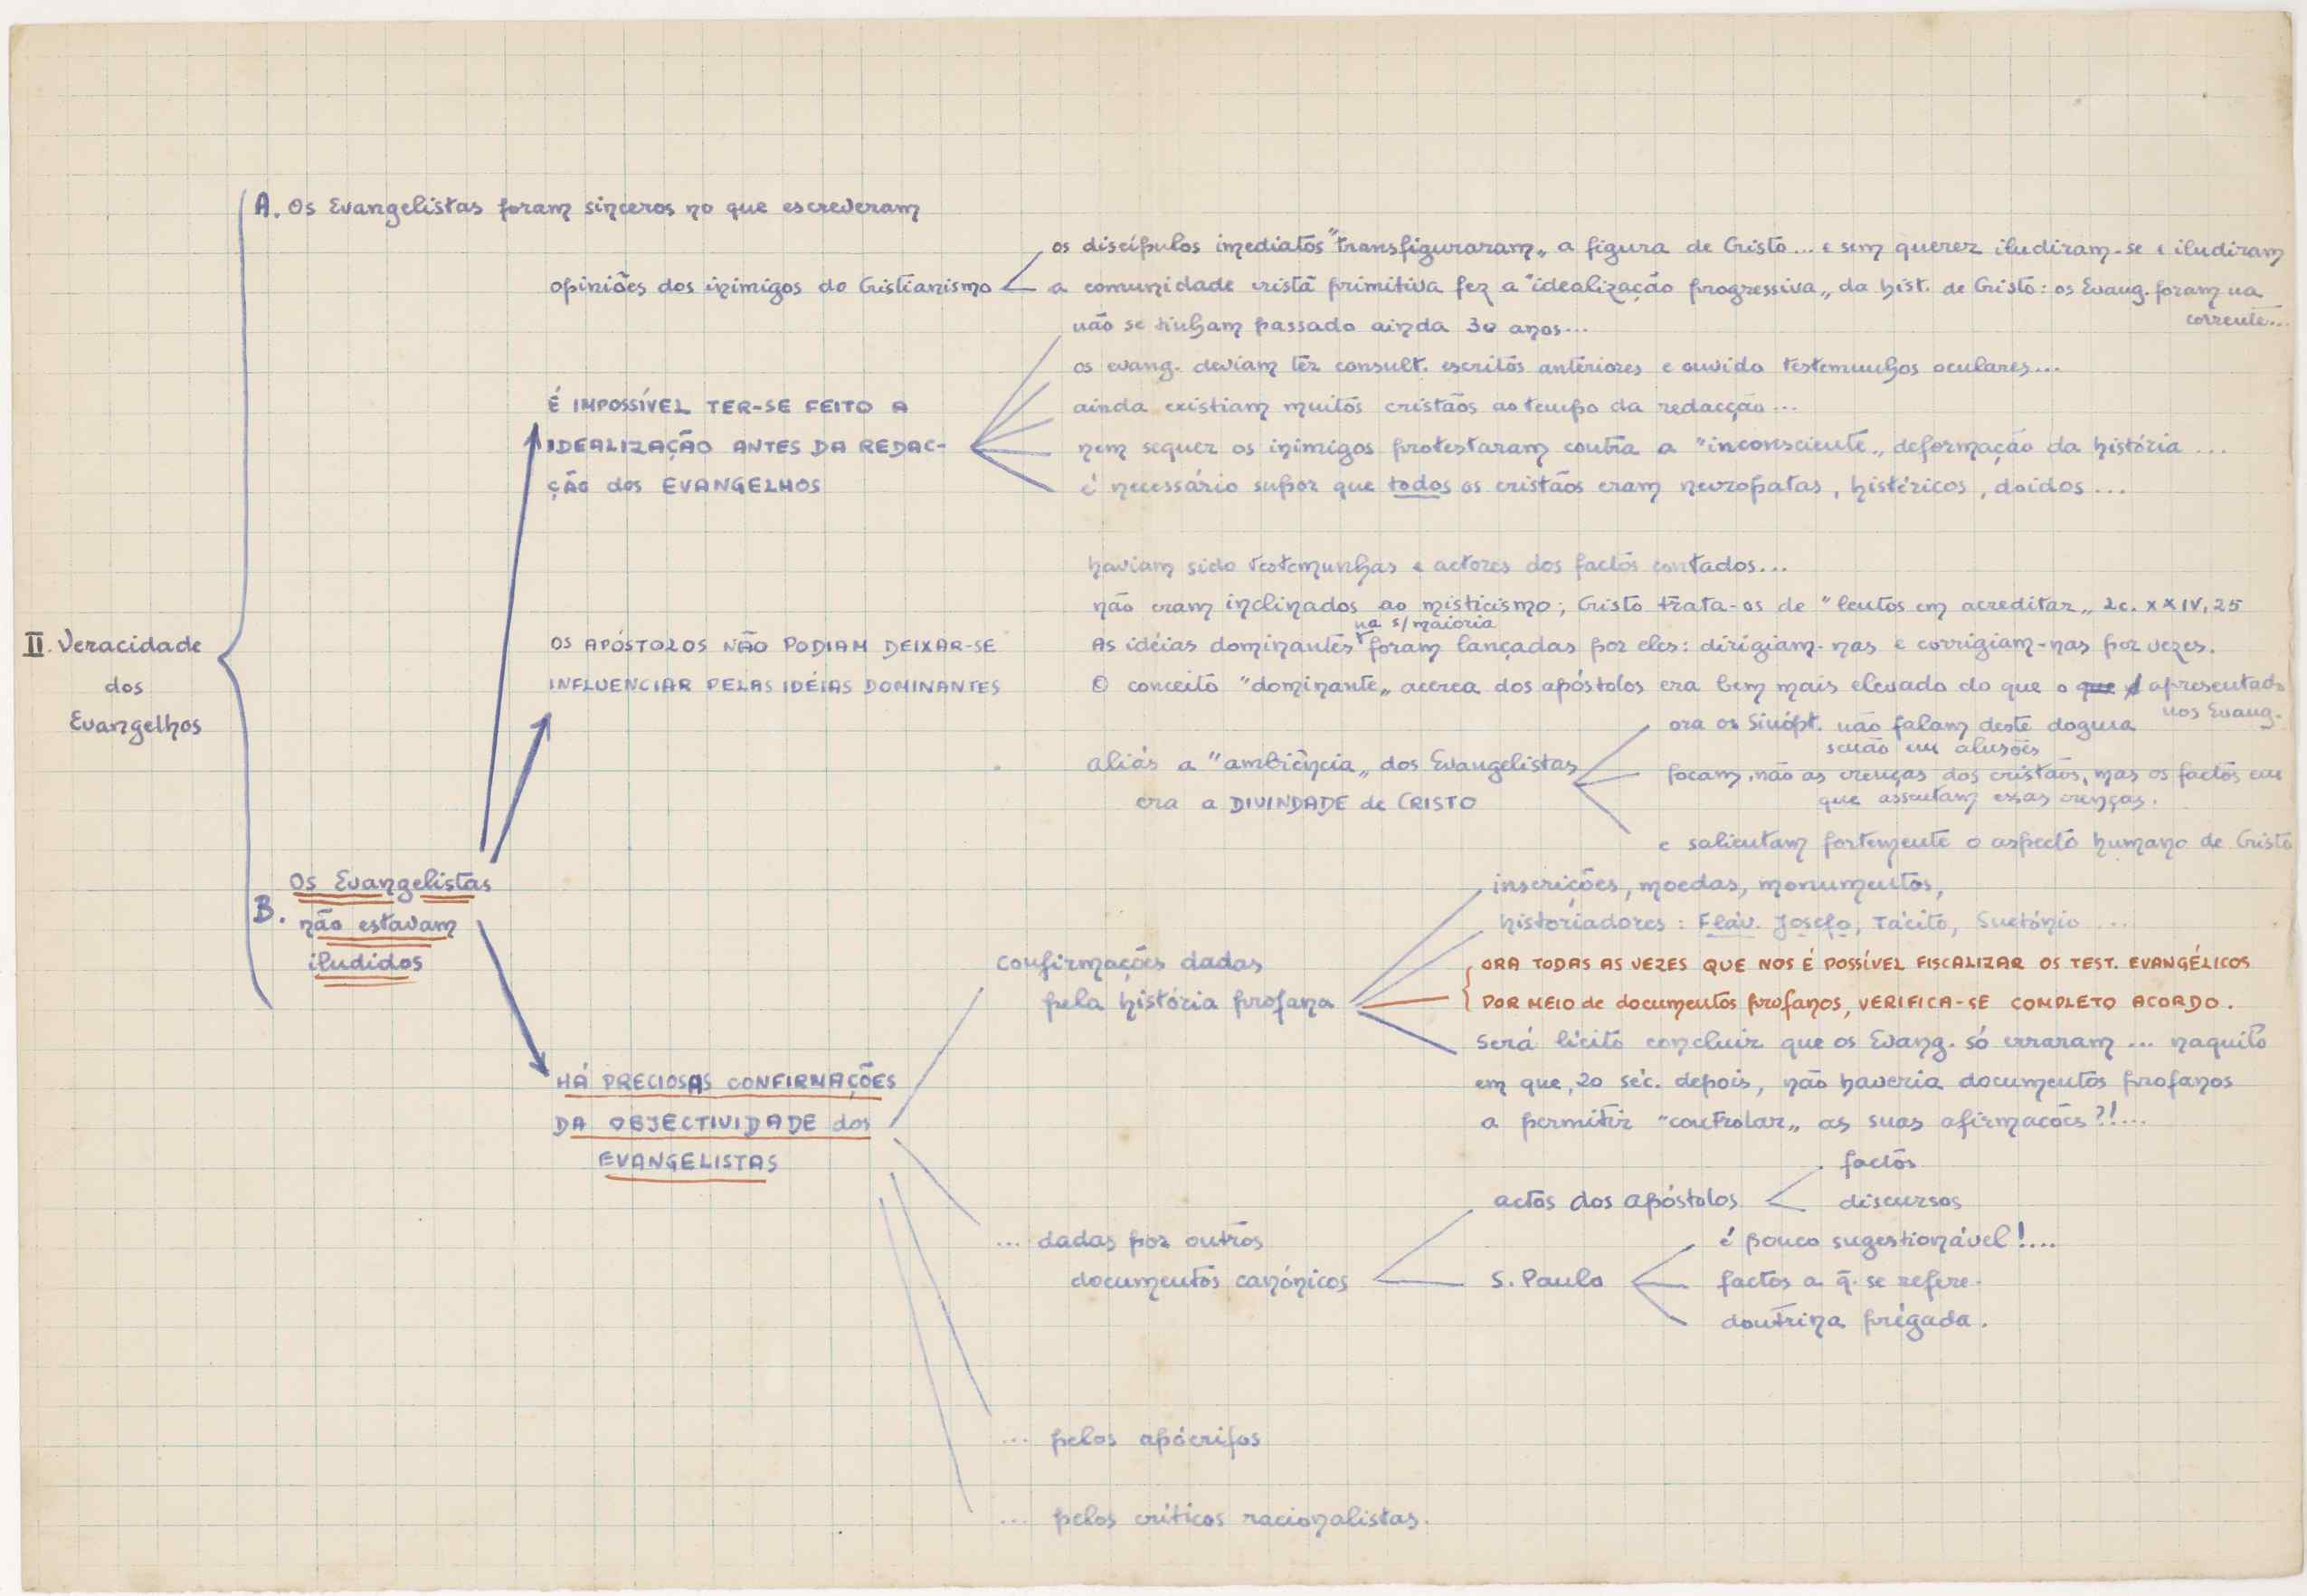 A. Os Evangelistas foram sinceros no que escreveram
opiniões dos inimigos do Cristianismo
os discípulos imediatos "transfiguraram„ a figura de Cristo... e sem querer iludiram-se e iludiram
a comunidade cristã primitiva fez a "idealização progressiva„ da hist. de Cristo: os Evang. foram na
corrente...
É IMPOSSÍVEL TER-SE FEITO A
IDEALIZAÇÃO ANTES DA REDAC-
ÇÃO dos EVANGELHOS
não se tinham passado ainda 30 anos...
os evang. deviam ter consult. escritos anteriores e ouvido testemunhos oculares...
ainda existiam muitos cristãos ao tempo da redacção...
nem sequer os inimigos protestaram contra a "inconsciente„ deformação da história ...
é necessário supor que todos os cristãos eram nevropatas, histéricos, doidos...
II. Veracidade
dos
Evangelhos
OS APÓSTOLOS NÃO PODIAM DEIXAR-SE
INFLUENCIAR PELAS IDÉIAS DOMINANTES
haviam sido testemunhas e actores dos factos contados...
não eram inclinados ao misticismo; Cristo trata-os de "lentos em acreditar„ Lc. XXIV, 25
na s/ maioria
As idéias dominantes foram lançadas por eles: dirigiam-nas e corrigiam-nas por vezes.
O conceito "dominante„ acerca dos apóstolos era bem mais elevado do que o que apresentado
nos Evang.
aliás a "ambiência„ dos Evangelistas
era a DIVINDADE de CRISTO
ora os Sinópt. não falam deste dogma
senão em alusões
focam, não as crenças dos cristãos, mas os factos em
que assentam essas crenças.
e salientam fortemente o aspecto humano de Cristo
B. Os Evangelistas
não estavam
iludidos
HÁ PRECIOSAS CONFIRMAÇÕES
DA OBJECTIVIDADE dos
EVANGELISTAS
confirmações dadas
pela história profana
inscrições, moedas, monumentos,
historiadores: Fláv. Josefo, Tácito, Suetónio ...
ORA TODAS AS VEZES QUE NOS É POSSÍVEL FISCALIZAR OS TEST. EVANGÉLICOS
POR MEIO de documentos profanos, VERIFICA-SE COMPLETO ACORDO.
Será lícito concluir que os Evang. só erraram ... naquilo
em que, 20 séc. depois, não haveria documentos profanos
a permitir "controlar„ as suas afirmações?!...
... dadas por outros
documentos canónicos
actos dos apóstolos
factos
discursos
S. Paulo
é pouco sugestionável!....
factos a q̄. se refere.
doutrina prègada.
... pelos apócrifos
... pelos críticos racionalistas.